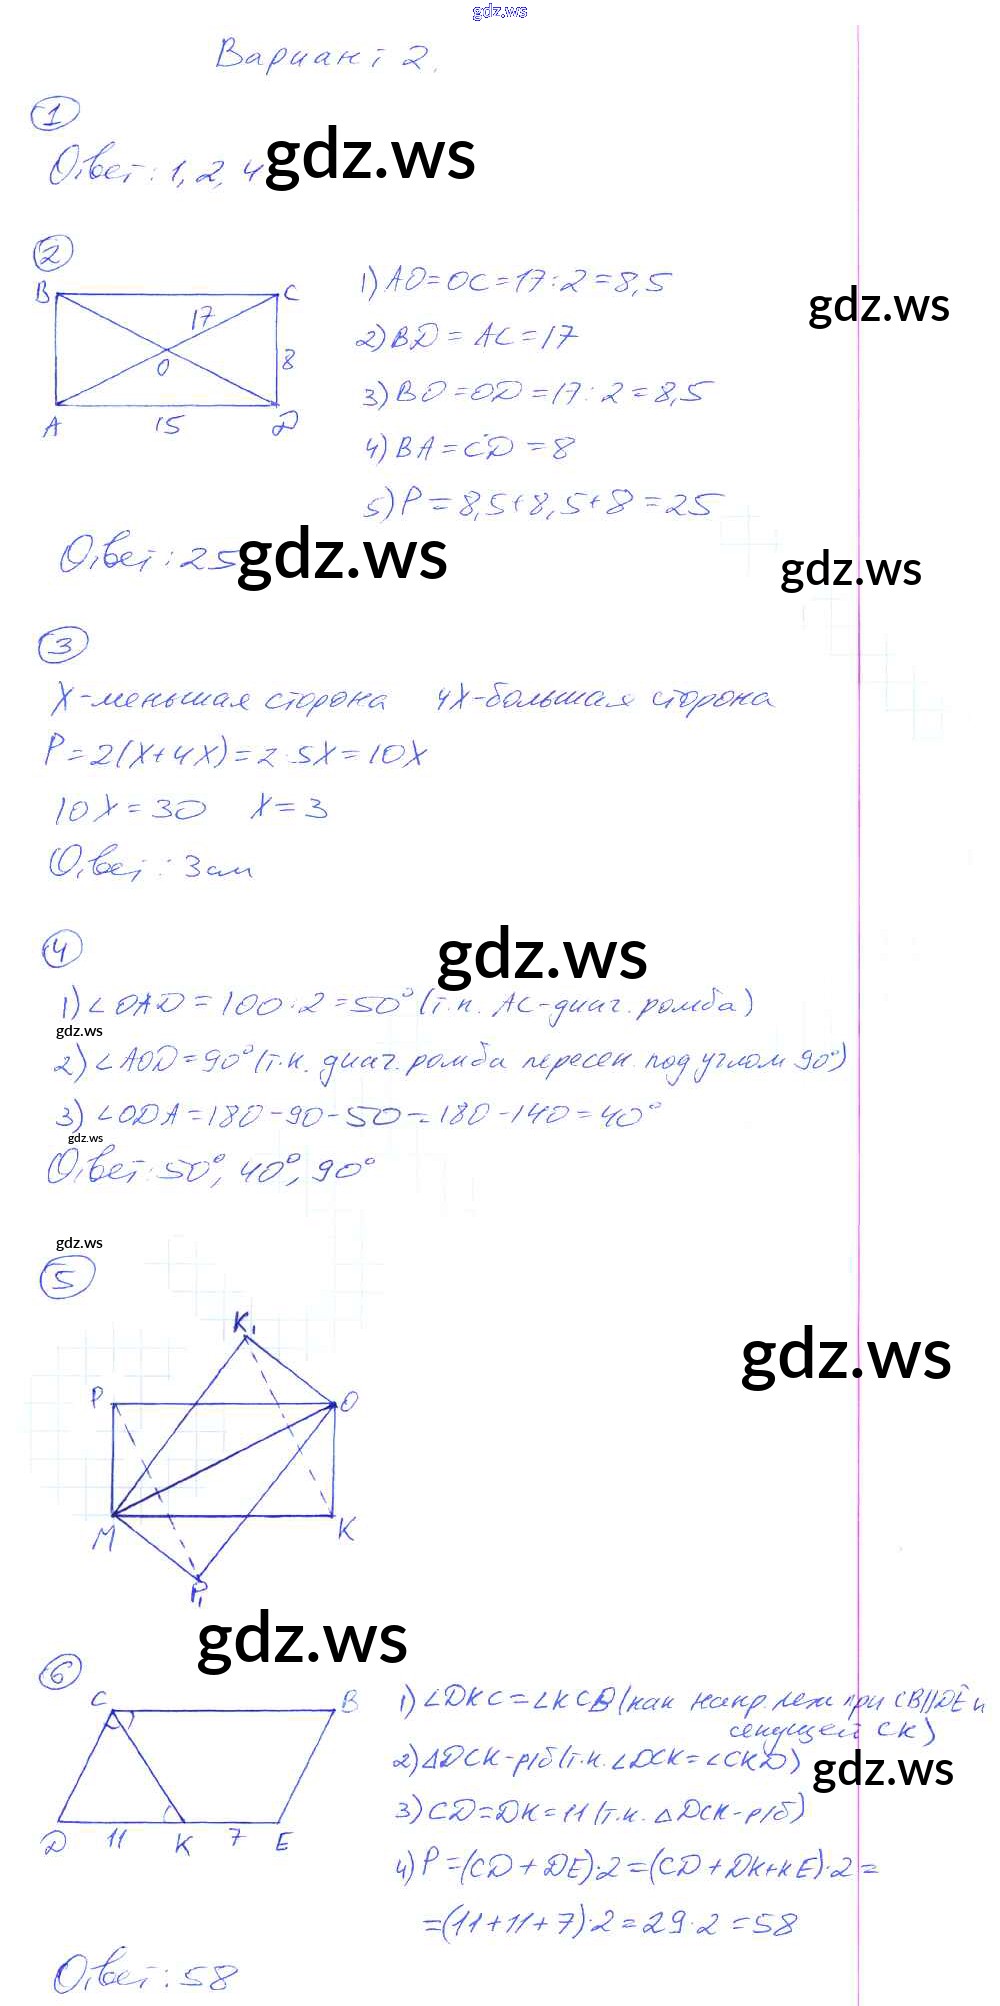 gdz.ws
Вариант 2.
1
Ответ: 1, 2, 4
gdz.ws
2
B C
17
O
8
A 15 D
1) AO = OC = 17 : 2 = 8,5
gdz.ws
2) BD = AC = 17
3) BO = OD = 17 : 2 = 8,5
4) BA = CD = 8
5) P = 8,5 + 8,5 + 8 = 25
Ответ: 25
gdz.ws
gdz.ws
3
X - меньшая сторона 4X - большая сторона
P = 2(X + 4X) = 2 · 5X = 10X
10X = 30 X = 3
Ответ: 3 см
4
gdz.ws
1) ∠OAD = 100 : 2 = 50° (т.к. AC - диаг. ромба)
gdz.ws
2) ∠AOD = 90° (т.к. диаг. ромба пересек. под углом 90°)
3) ∠ODA = 180 - 90 - 50 = 180 - 140 = 40°
gdz.ws
Ответ: 50°, 40°, 90°
gdz.ws
5
K₁
P O
M K
P₁
gdz.ws
gdz.ws
6
C B
D 11 K 7 E
1) ∠DKC = ∠KCB (как накр. леж при CB||DE и
секущей CK)
2) ΔDCK - р/б (т.к. ∠DCK = ∠CKD)
gdz.ws
3) CD = DK = 11 (т.к. ΔDCK - р/б)
4) P = (CD + DE) · 2 = (CD + DK + KE) · 2 =
= (11 + 11 + 7) · 2 = 29 · 2 = 58
Ответ: 58